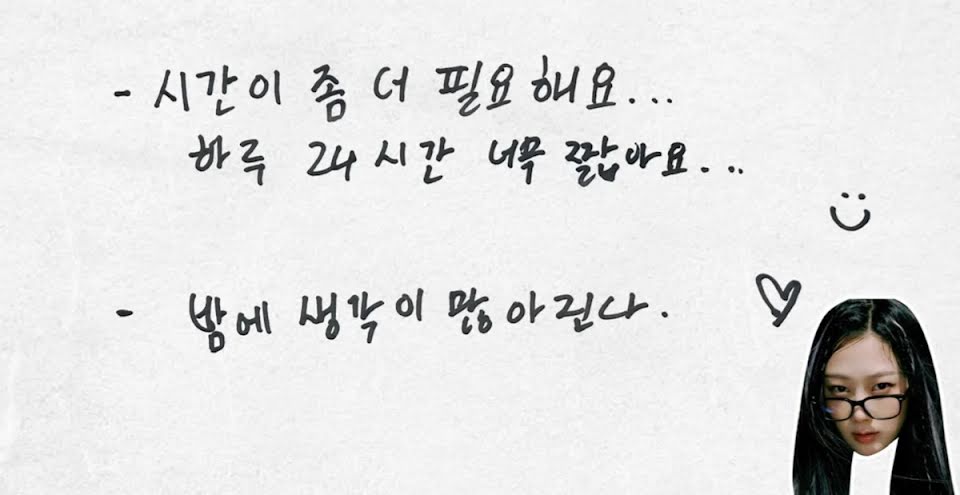 - 시간이 좀 더 필요해요...
하루 24시간 너무 짧아요...
- 밤에 생각이 많아진다.